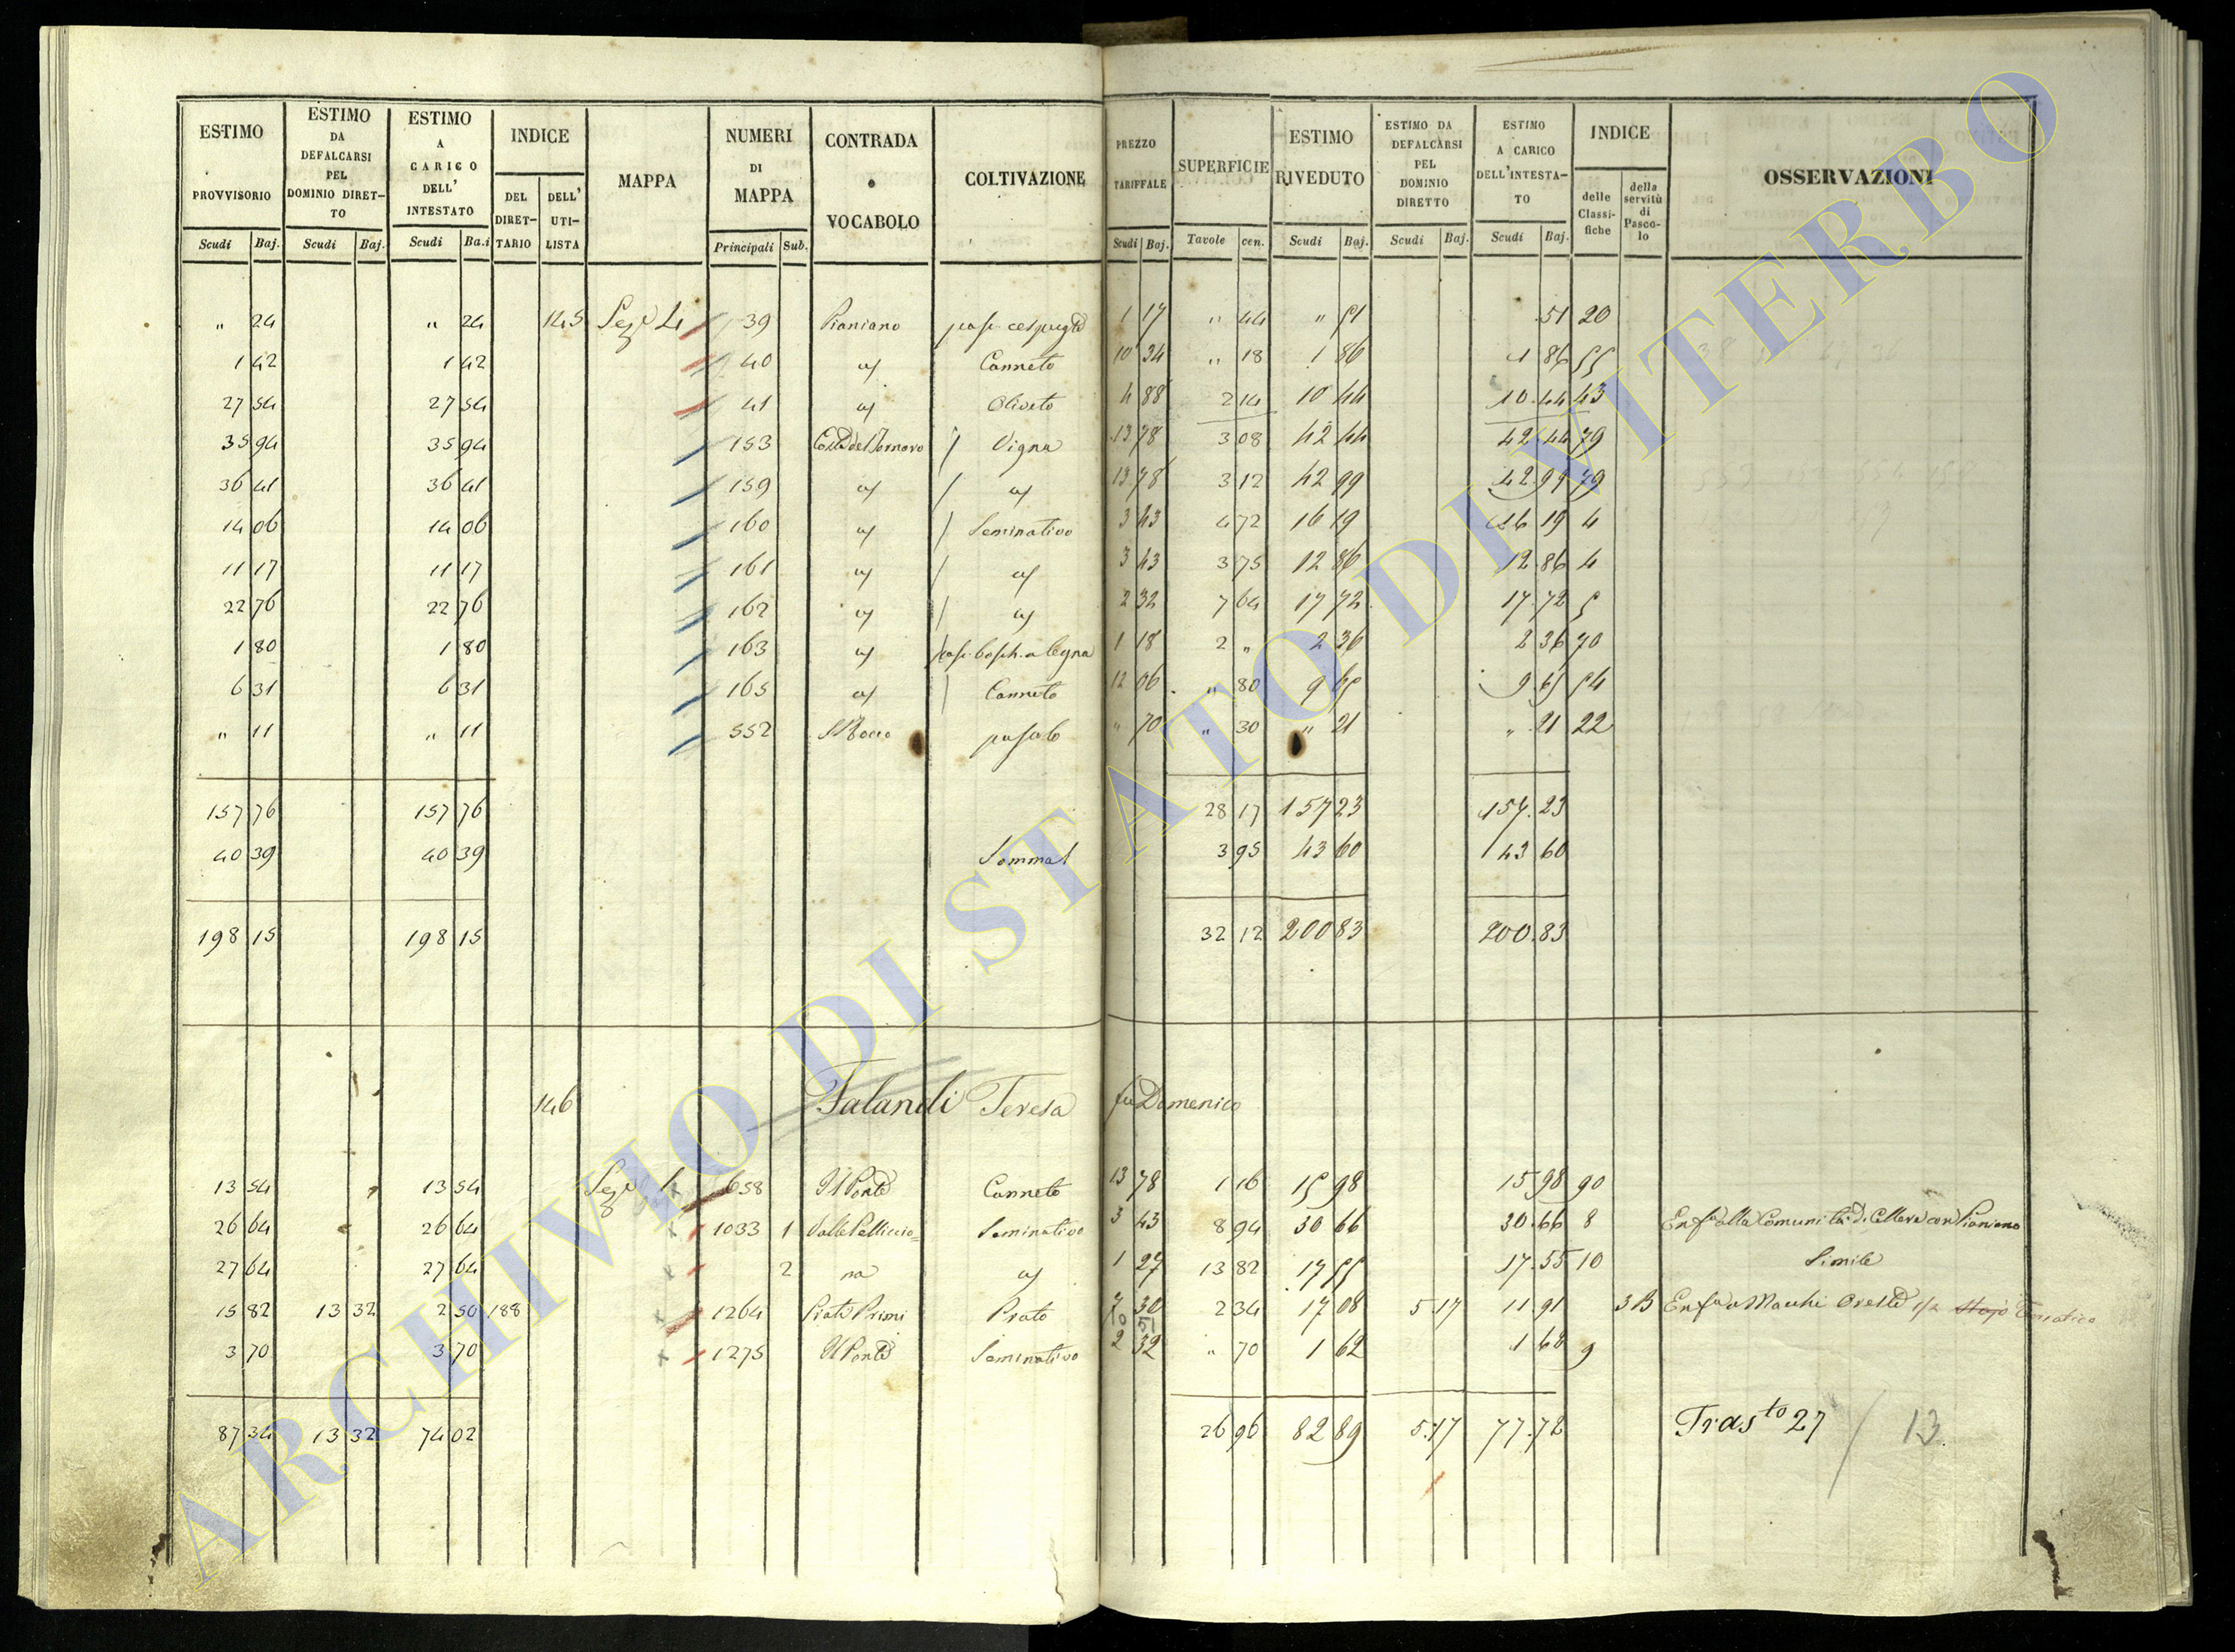 ESTIMO PROVVISORIO | ESTIMO DA DEFALCARSI PEL DOMINIO DIRETTO | ESTIMO A CARICO DELL' INTESTATO | INDICE DEL DIRETTARIO | DELL' UTILISTA | MAPPA | NUMERI DI MAPPA | CONTRADA o VOCABOLO | COLTIVAZIONE | PREZZO TARIFFALE | SUPERFICIE | ESTIMO RIVEDUTO | ESTIMO DA DEFALCARSI PEL DOMINIO DIRETTO | ESTIMO A CARICO DELL'INTESTATO | INDICE delle Classifiche | della servitù di Pascolo | OSSERVAZIONI
Scudi | Baj. | Scudi | Baj. | Scudi | Ba.i | Principali | Sub. | Scudi | Baj. | Tavole | cen. | Scudi | Baj. | Scudi | Baj. | Scudi | Baj.
" 24 | " 24 | 145 | Sez.e 4 | 39 | Pianiano | pasc. cespugl.o | 1 17 | " 44 | " 51 | 51 | 20
1 42 | 1 42 | 40 | a/ | Canneto | 10 34 | " 18 | 1 86 | 1 86 | 55
27 54 | 27 54 | 41 | a/ | Oliveto | 4 88 | 2 14 | 10 44 | 10.44 | 43
35 94 | 35 94 | 153 | Vigna | 13 78 | 3 08 | 42 44 | 42 44 | 79
36 41 | 36 41 | 159 | a/ | a/ | 13 78 | 3 12 | 42 99 | 42 99 | 79
14 06 | 14 06 | 160 | a/ | Seminativo | 3 43 | 4 72 | 16 19 | 16 19 | 4
11 17 | 11 17 | 161 | a/ | a/ | 3 43 | 3 75 | 12 86 | 12.86 | 4
22 76 | 22 76 | 162 | a/ | a/ | 2 32 | 7 64 | 17 72 | 17.72 | 5
1 80 | 1 80 | 163 | a/ | pasc. bosch. a legna | 1 18 | 2 " | 2 36 | 2 36 | 70
6 31 | 6 31 | 165 | a/ | Canneto | 12 06 | " 80 | 9 65 | 9.65 | 54
" 11 | " 11 | 552 | S. Rocco | pascolo | " 70 | " 30 | " 21 | " 21 | 22
157 76 | 157 76 | 28 17 | 157 23 | 157.23
40 39 | 40 39 | Somma | 3 95 | 43 60 | 43 60
198 15 | 198 15 | 32 12 | 200 83 | 200.83
146 | Falandi Teresa fu Domenico
13 54 | 13 54 | Sez.e 1 | 658 | Il Ponte | Canneto | 13 78 | 1 16 | 15 98 | 15 98 | 90
26 64 | 26 64 | 1033 | 1 | Valle Pelliccio= | Seminativo | 3 43 | 8 94 | 30 66 | 30.66 | 8 | Enf.a alla Comunità di Cellere con Pianiano
27 64 | 27 64 | 2 | na | a/ | 1 27 | 13 82 | 17 55 | 17.55 | 10 | Simile
15 82 | 13 32 | 2 50 | 188 | 1264 | Prati Primi | Prato | 7 30 | 2 34 | 17 08 | 5 17 | 11 91 | 3 B | Enf.a a Macchi Oreste 1/2
3 70 | 3 70 | 1275 | Il Ponte | Seminativo | 2 32 | " 70 | 1 62 | 1 62 | 9
87 34 | 13 32 | 74 02 | 26 96 | 82 89 | 5.17 | 77.72 | Tras.to 27 / 13
ARCHIVIO DI STATO DI VITERBO